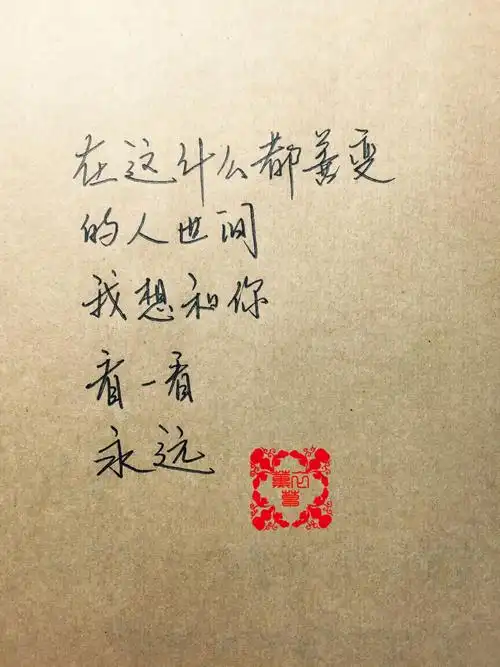 在这什么都善变
的人世间
我想和你
看一看
永远